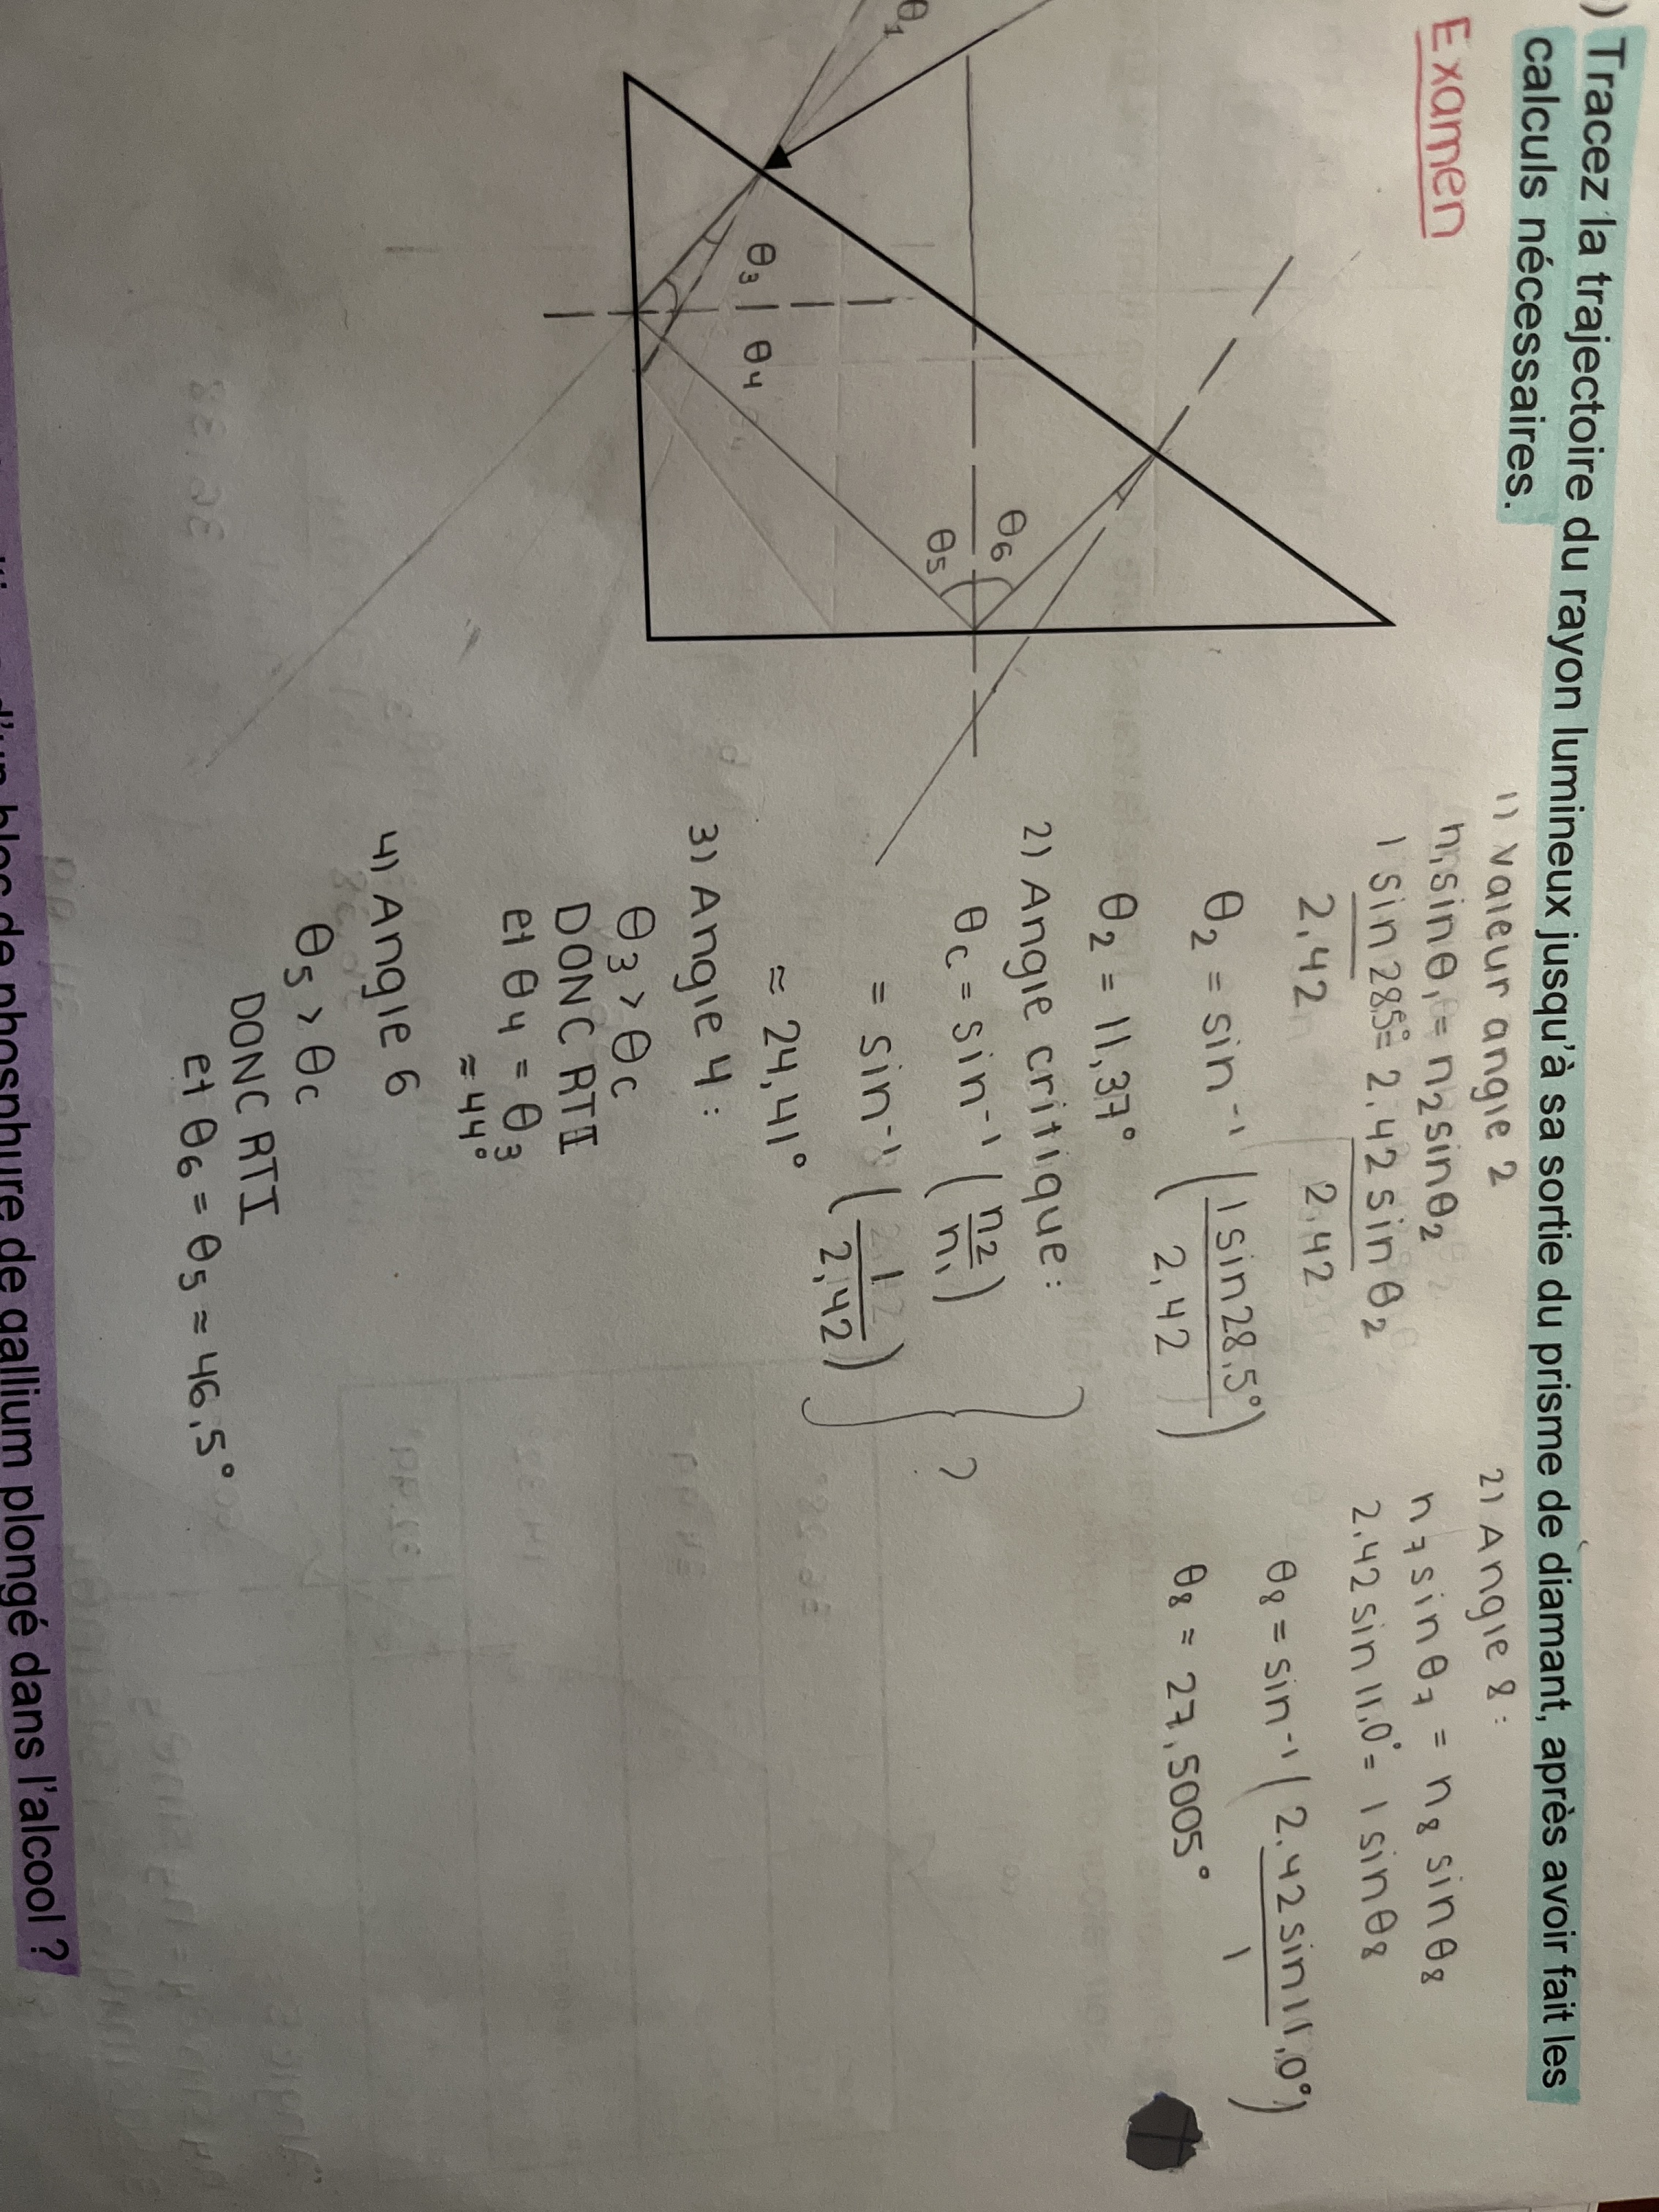 ) Tracez la trajectoire du rayon lumineux jusqu'à sa sortie du prisme de diamant, après avoir fait les
calculs nécessaires.
Examen
θ1
θ3
θ4
θ5
θ6
1) valeur angle 2
n1 sinθ1 = n2 sinθ2
1 sin 28.5° = 2.42 sin θ2
2,42 2.42
θ2 = sin⁻¹ (1 sin 28,5° / 2,42)
θ2 = 11,37°
2) Angle critique :
θc = sin⁻¹ (n2 / n1)
= sin⁻¹ (1 / 2,42)
≈ 24,41°
?
3) Angle 4 :
θ3 > θc
DONC RTI
et θ4 = θ3
≈ 44°
4) Angle 6
θ5 > θc
DONC RTI
et θ6 = θ5 ≈ 46,5°
2) Angle 8 :
n7 sin θ7 = n8 sin θ8
2.42 sin 11.0° = 1 sin θ8
θ8 = sin⁻¹ (2.42 sin 11.0° / 1)
θ8 = 27,5005°
d'un bloc de phosphure de gallium plongé dans l'alcool ?